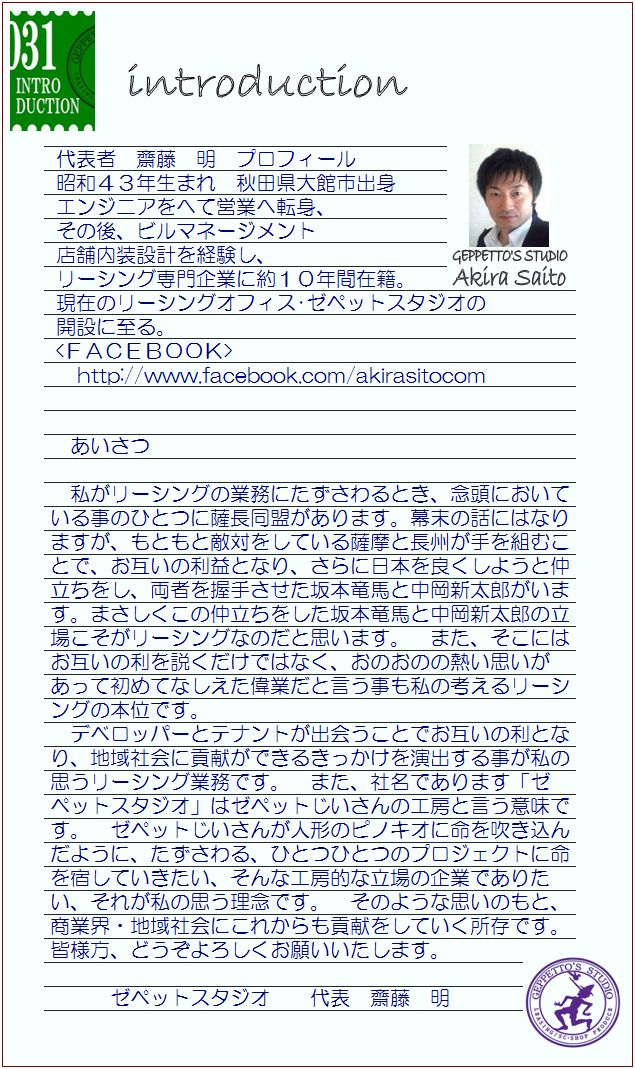 031
INTRO
DUCTION
introduction
代表者 齋藤 明 プロフィール
昭和４３年生まれ 秋田県大館市出身
エンジニアをへて営業へ転身、
その後、ビルマネージメント
店舗内装設計を経験し、
リーシング専門企業に約１０年間在籍。
現在のリーシングオフィス・ゼペットスタジオの
開設に至る。
<ＦＡＣＥＢＯＯＫ>
http://www.facebook.com/akirasitocom
GEPPETTO'S STUDIO
Akira Saito
あいさつ
私がリーシングの業務にたずさわるとき、念頭において
いる事のひとつに薩長同盟があります。幕末の話にはなり
ますが、もともと敵対をしている薩摩と長州が手を組むこ
とで、お互いの利益となり、さらに日本を良くしようと仲
立ちをし、両者を握手させた坂本竜馬と中岡新太郎がいま
す。まさしくこの仲立ちをした坂本竜馬と中岡新太郎の立
場こそがリーシングなのだと思います。 また、そこには
お互いの利を説くだけではなく、おのおのの熱い思いが
あって初めてなしえた偉業だと言う事も私の考えるリーシ
ングの本位です。
デベロッパーとテナントが出会うことでお互いの利とな
り、地域社会に貢献ができるきっかけを演出する事が私の
思うリーシング業務です。 また、社名であります「ゼ
ペットスタジオ」はゼペットじいさんの工房と言う意味で
す。 ゼペットじいさんが人形のピノキオに命を吹き込ん
だように、たずさわる、ひとつひとつのプロジェクトに命
を宿していきたい、そんな工房的な立場の企業でありた
い、それが私の思う理念です。 そのような思いのもと、
商業界・地域社会にこれからも貢献をしていく所存です。
皆様方、どうぞよろしくお願いいたします。
ゼペットスタジオ 代表 齋藤 明
GEPPETTO'S STUDIO
LEASING/SC·SHOP PRODUCE